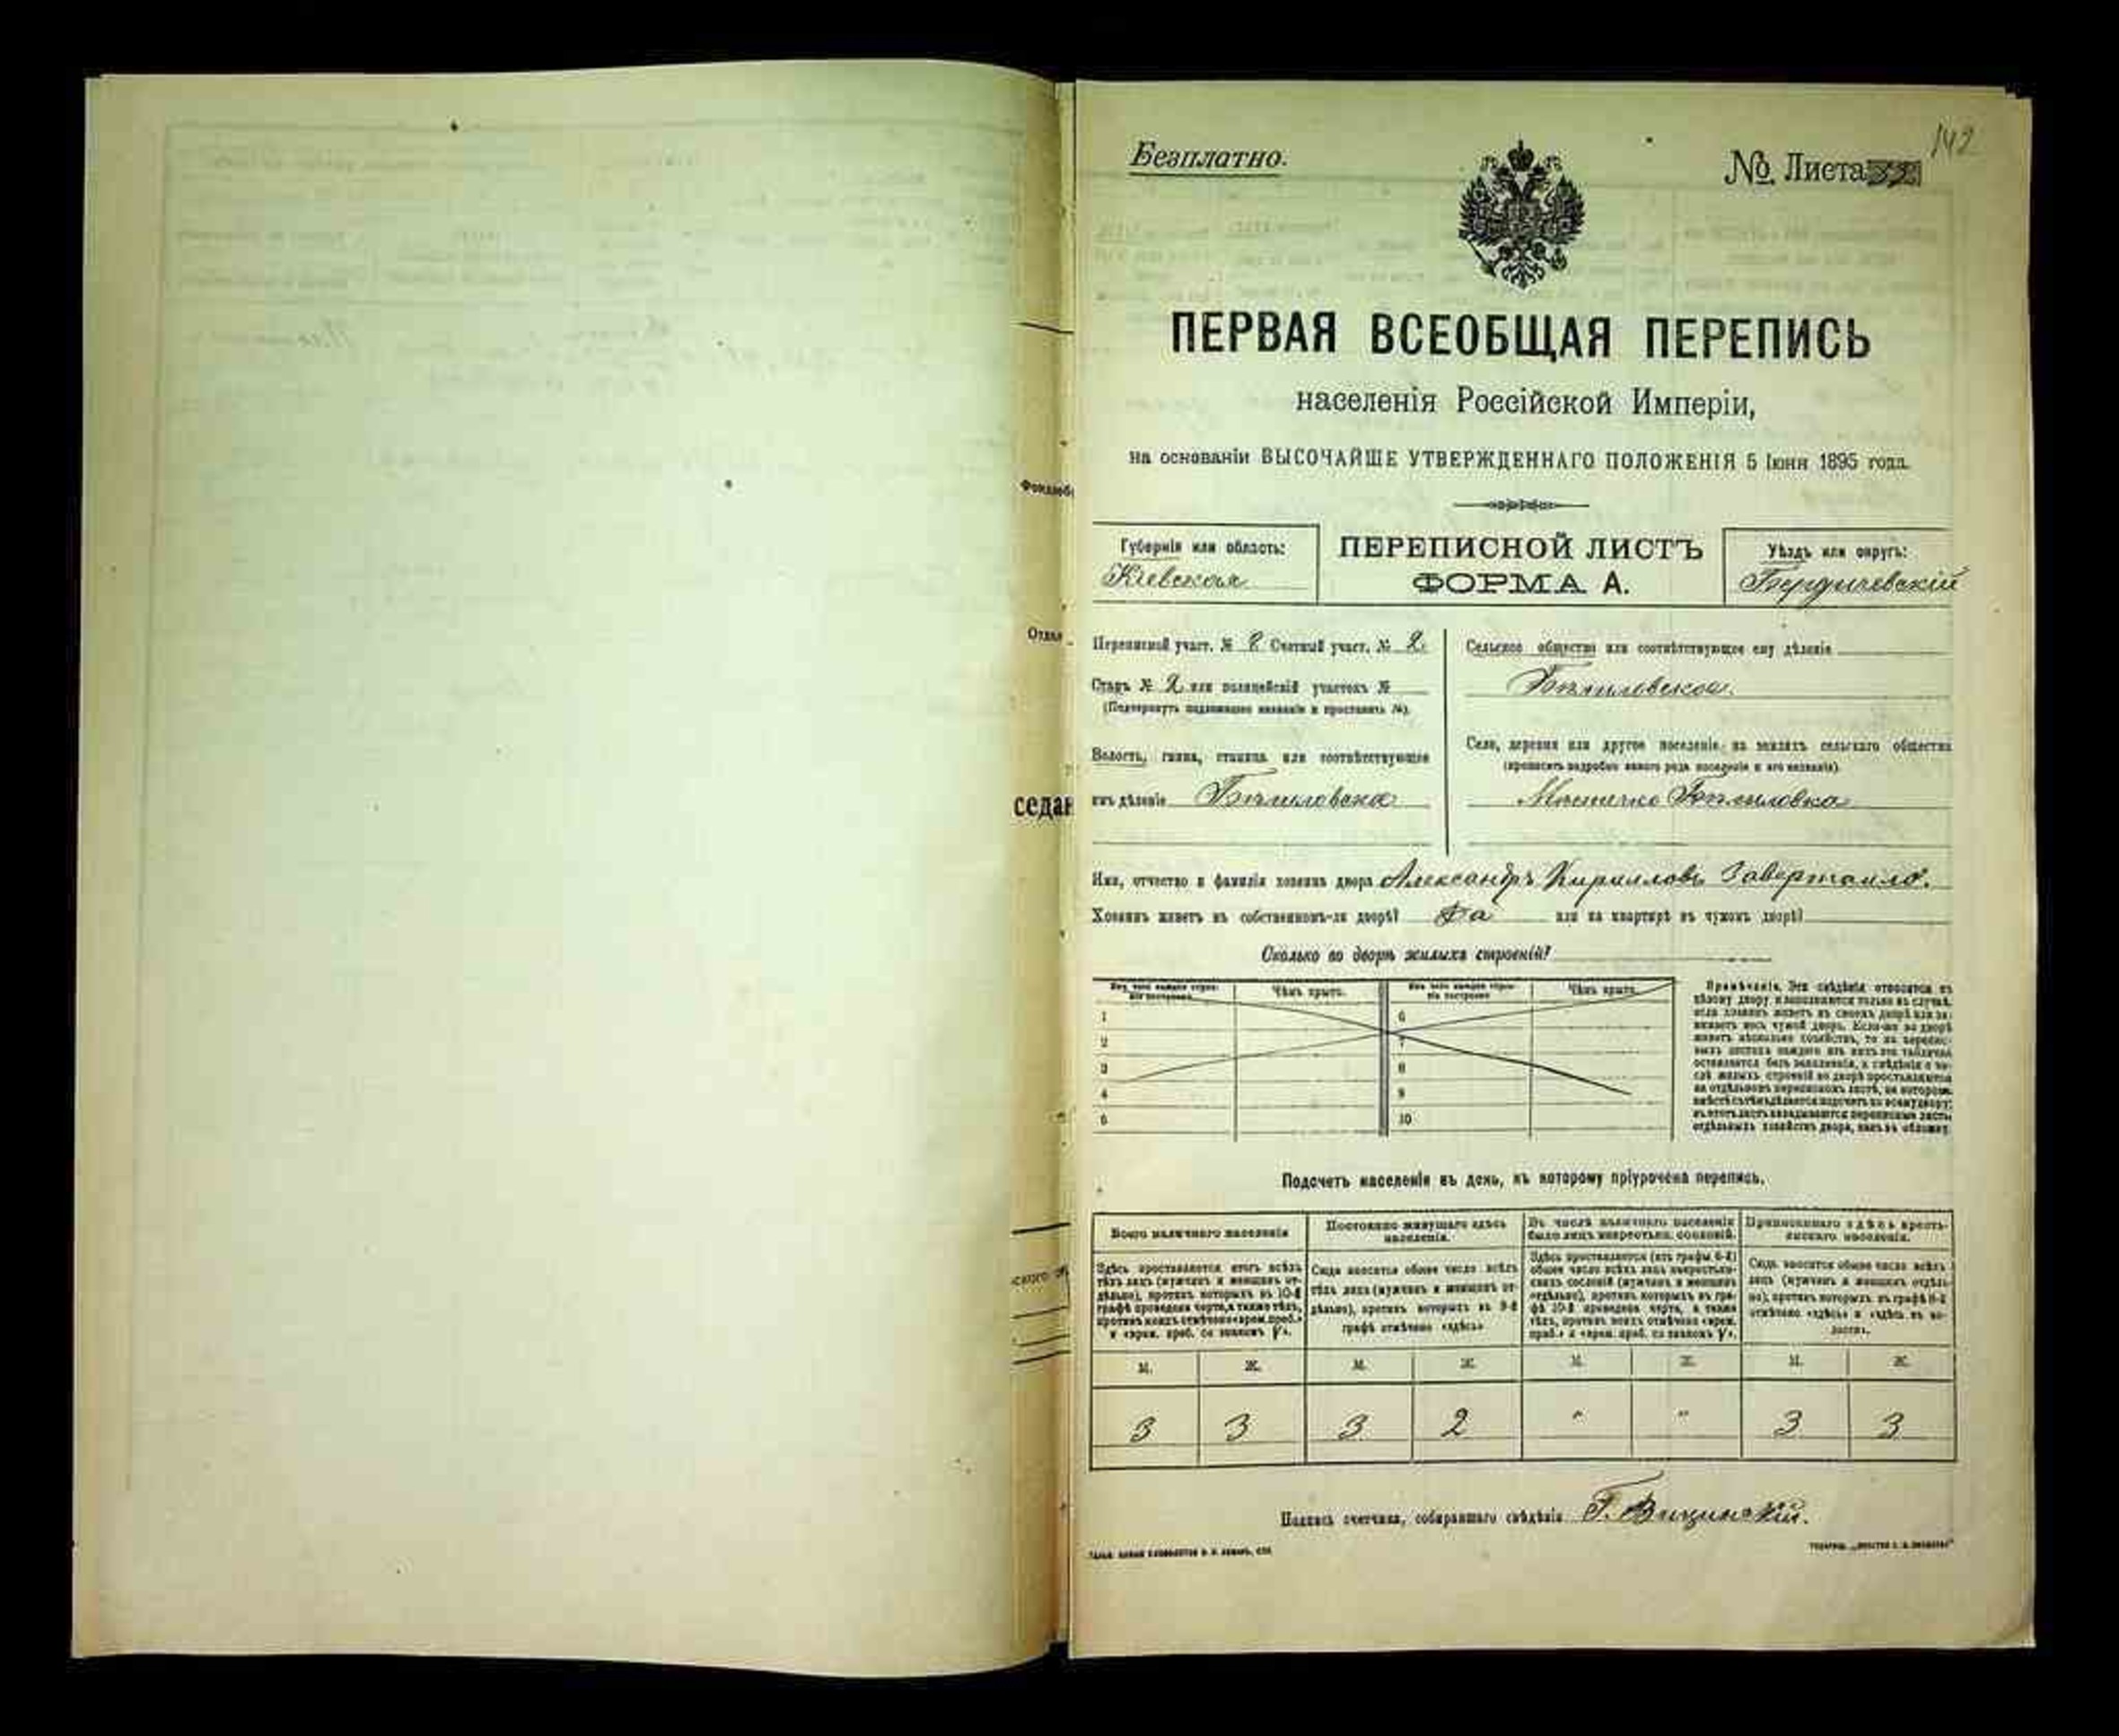 142
Безплатно.
№ Листа
ПЕРВАЯ ВСЕОБЩАЯ ПЕРЕПИСЬ
населенія Россійской Имперіи,
на основаніи ВЫСОЧАЙШЕ УТВЕРЖДЕННАГО ПОЛОЖЕНІЯ 5 Іюня 1895 года.
Губернія или область:
Кіевская
ПЕРЕПИСНОЙ ЛИСТЪ
ФОРМА А.
Уѣздъ или округъ:
Бердичевскій
Переписной участ. № 8 Счетный участ. № 2.
Станъ № 2 или полицейскій участокъ №
(Подчеркнуть надлежащее названіе и проставить №).
Волость, гмина, станица или соотвѣтствующее
имъ дѣленіе Бѣлиловская
Сельское общество или соотвѣтствующее ему дѣленіе
Бѣлиловское.
Село, деревня или другое поселеніе на земляхъ сельскаго общества
(прописать подробно какого рода поселеніе и его названіе).
Мѣстечко Бѣлиловка
Имя, отчество и фамилія хозяина двора Александръ Кирилловъ Завертайло.
Хозяинъ живетъ въ собственномъ-ли дворѣ? Да или на квартирѣ въ чужомъ дворѣ?
Сколько во дворѣ жилыхъ строеній?
Изъ чего каждое строеніе построено.
Чѣмъ крыто.
Изъ чего каждое строеніе построено
Чѣмъ крыто.
1 6
2 7
3 8
4 9
5 10
Примѣчаніе. Эти свѣдѣнія относятся къ
цѣлому двору и заполняются только въ случаѣ,
если хозяинъ живетъ въ своемъ дворѣ или за-
нимаетъ весь чужой дворъ. Если-же во дворѣ
живетъ нѣсколько хозяйствъ, то на перепис-
ныхъ листахъ каждаго изъ нихъ эта табличка
оставляется безъ заполненія, а свѣдѣнія о чи-
слѣ жилыхъ строеній во дворѣ проставляются
на отдѣльномъ переписномъ листѣ, на которомъ
вмѣстѣ съ тѣмъ дѣлается подсчетъ по всему двору;
въ этотъ листъ вкладываются переписные листы
отдѣльныхъ хозяйствъ двора, какъ въ обложку.
Подсчетъ населенія въ день, къ которому пріурочена перепись.
Всего наличнаго населенія
Здѣсь проставляется итогъ всѣхъ
тѣхъ лицъ (мужчинъ и женщинъ от-
дѣльно), противъ которыхъ въ 10-й
графѣ проведена черта, а также тѣхъ,
противъ коихъ отмѣчено «врем. преб.»
и «врем. преб. со знакомъ V».
Постоянно живущаго здѣсь
населенія.
Сюда вносится общее число всѣхъ
тѣхъ лицъ (мужчинъ и женщинъ от-
дѣльно), противъ которыхъ въ 9-й
графѣ отмѣчено «здѣсь»
Въ числѣ наличнаго населенія
было лицъ некрестьянск. сословій.
Здѣсь проставляется (изъ графы 6-й)
общее число всѣхъ лицъ некрестьян-
скихъ сословій (мужчинъ и женщинъ
отдѣльно), противъ которыхъ въ гра-
фѣ 10-й проведена черта, а также
тѣхъ, противъ коихъ отмѣчено «врем.
преб.» и «врем. преб. со знакомъ V».
Приписаннаго здѣсь кресть-
янскаго населенія.
Сюда вносится общее число всѣхъ
лицъ (мужчинъ и женщинъ отдѣль-
но), противъ которыхъ въ графѣ 8-й
отмѣчено «здѣсь» и «здѣсь въ во-
лости».
М. Ж. М. Ж. М. Ж. М. Ж.
3 3 3 2 " " 3 3
Подпись счетчика, собиравшаго свѣдѣнія
седан
Отдѣл